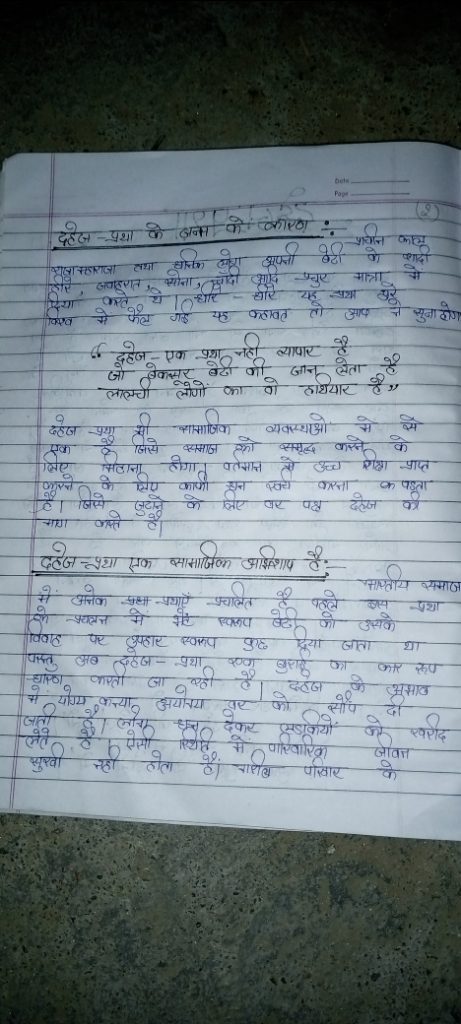 Date
Page
(2)
दहेज-प्रथा के जन्म के कारण :-
प्राचीन काल
राजा महाराजा तथा धनिक लोग अपनी बेटी के शादी
हीरे, जवाहरात, सोना, चाँदी आदि प्रचुर मात्रा में
दिया करते थे। धीरे-धीरे यह प्रथा पूरे
विश्व में फैल गई यह कहावत तो आप ने सुना होगा
“ दहेज-एक प्रथा नही व्यापार है
जो बेकसूर बेटी की जान लेता है
लालची लोगों का वो हथियार है ”
दहेज प्रथा भी सामाजिक व्यवस्थाओ में से
एक है जिसे समाज को समृद्ध करने के
लिए मिटाना होगा। वर्तमान में उच्च शिक्षा प्राप्त
करने के लिए काफी धन खर्च करना पडता
है। जिसे जुटाने के लिए वर पक्ष दहेज की
माग करते है।
दहेज-प्रथा एक सामाजिक अभिशाप है:-
भारतीय समाज
में अनेक प्रथा प्रचलित है पहले इस प्रथा
के प्रचलन मे भेंट स्वरूप बेटी को उसके
विवाह पर उपहार स्वरूप कुछ दिया जाता था
परन्तु अब दहेज-प्रथा बुराई का रूप
धारण करती जा रही है। दहेज के अभाव
मे योग्य कन्या अयोग्य वर को सौप दी
जती है। लोग धन देकर लडकियों को खरीद
लेते है। ऐसी स्थिति में पारिवारिक जीवन
सुखी नही होता है। परिवार के